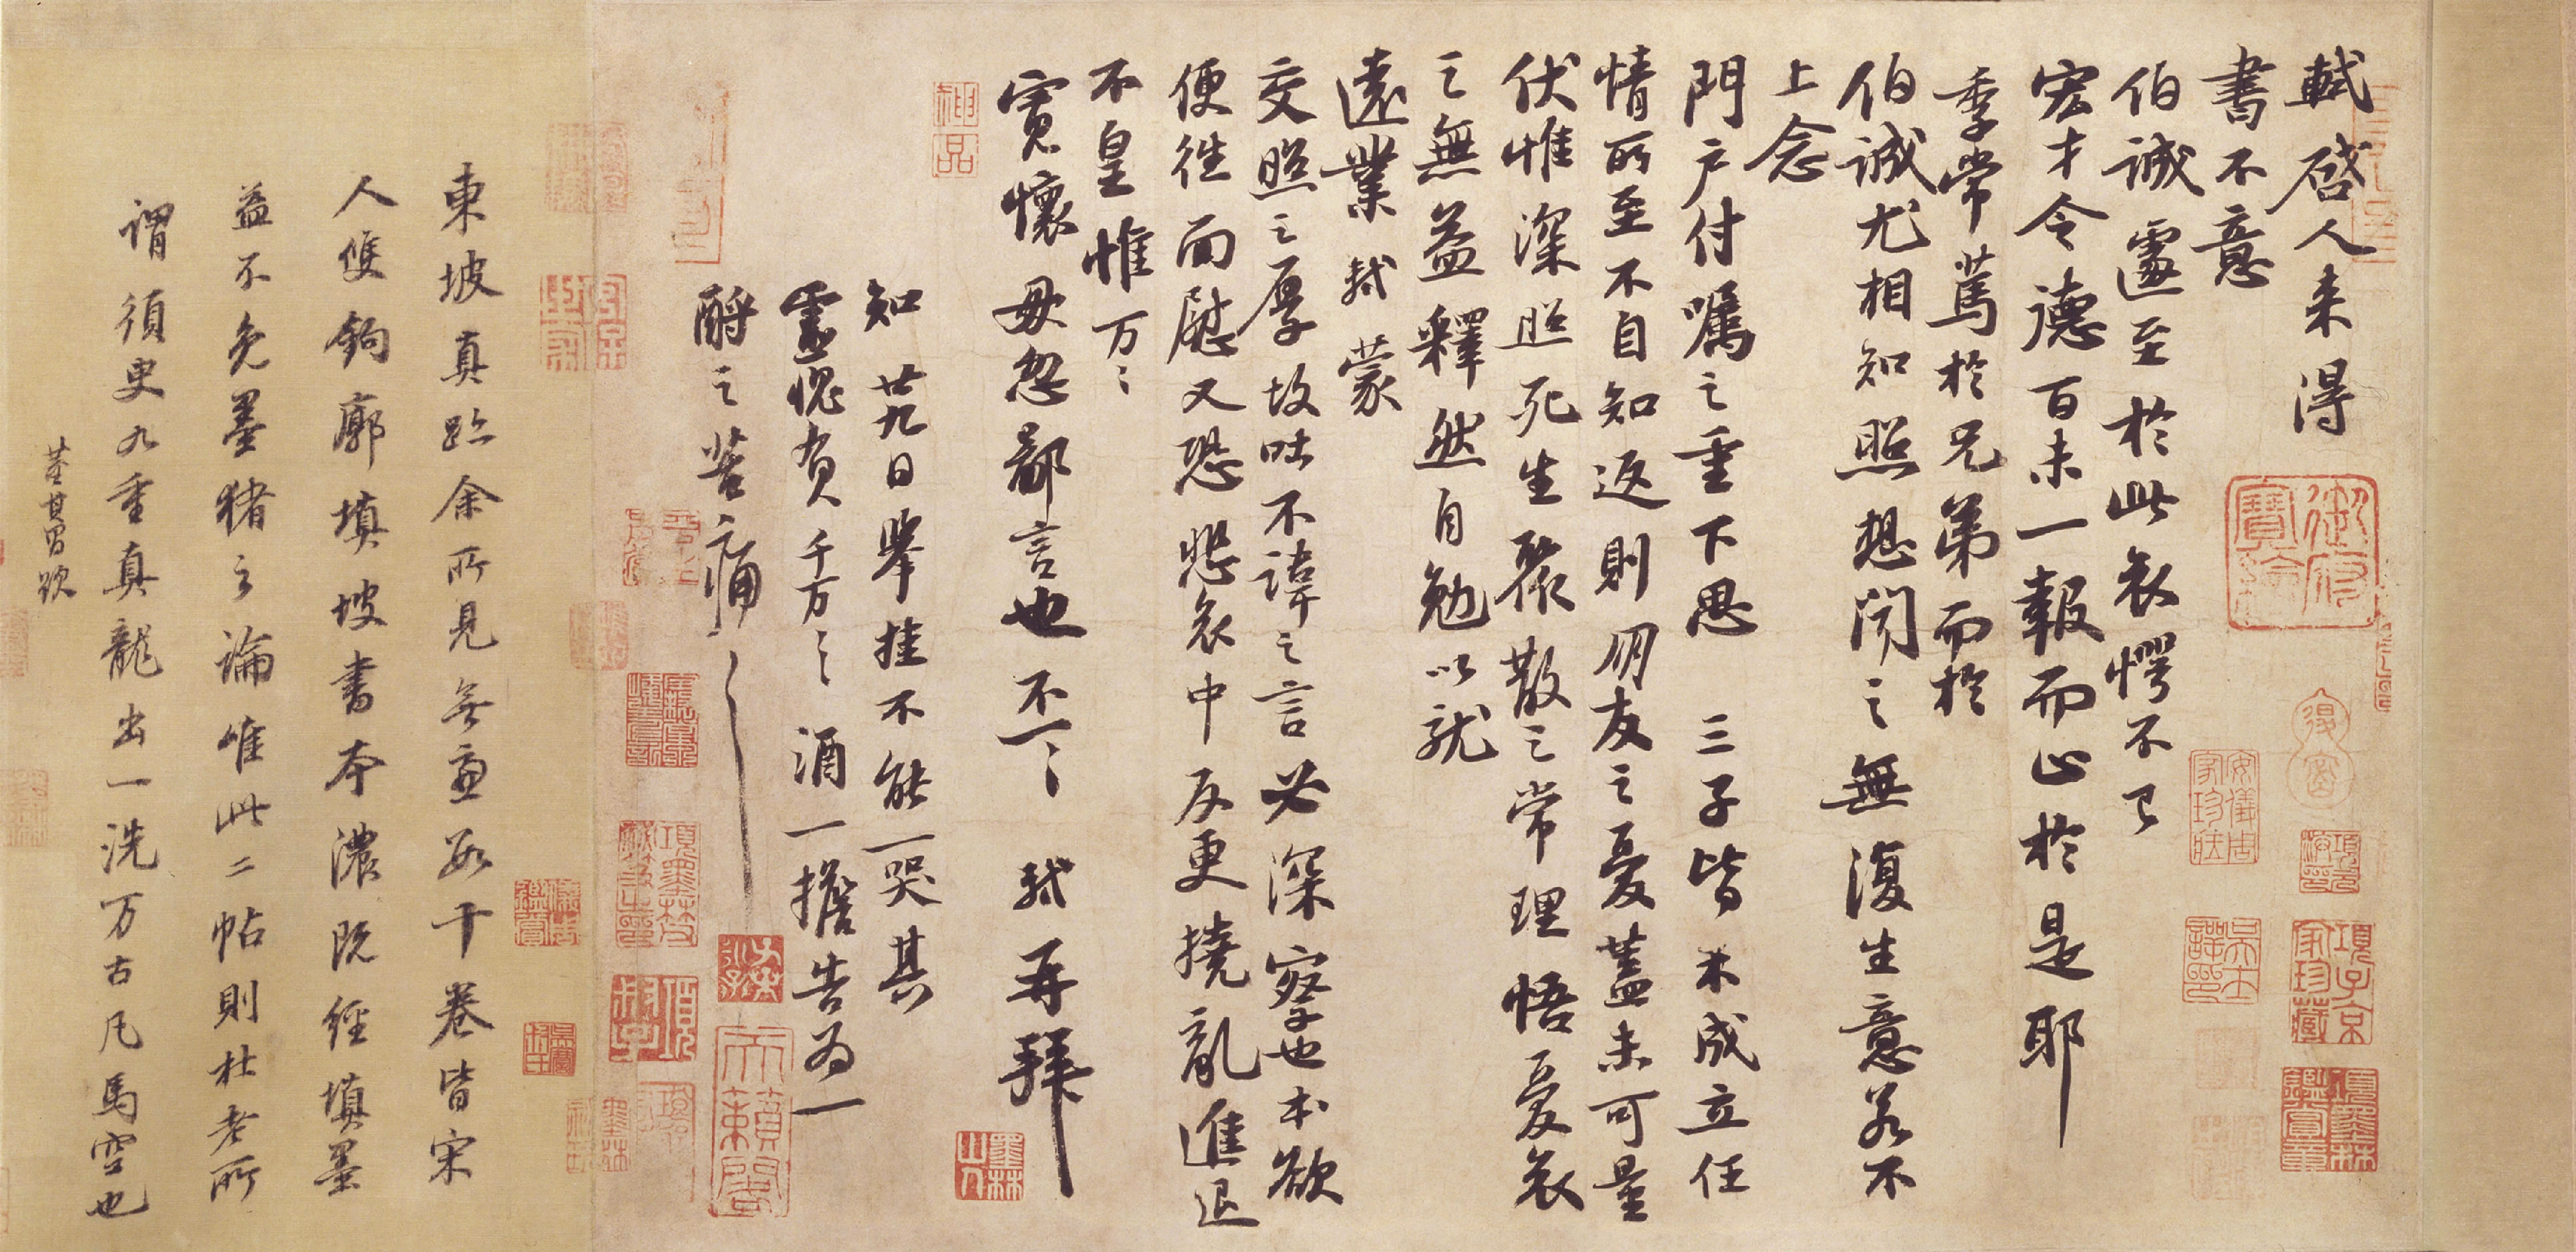 軾啓人来得
書不意
伯誠遽至於此哀愕不已
宏才令德百未一報而止於是耶
季常篤於兄弟而於
伯誠尤相知照想聞之無復生意若不
上念
門户付囑之重下思三子皆未成立任
情所至不自知返則朋友之憂蓋未可量
伏惟深照死生聚散之常理悟憂哀
之無益釋然自勉以就
遠業軾蒙
交照之厚故吐不諱之言必深察也本欲
便往面慰又恐悲哀中反更撓亂進退
不皇惟万〻
寬懷毋忽鄙言也不一〻軾再拜
知廿九日舉挂不能一哭其
靈愧負千万〻酒一擔告為一
酹之苦痛〻
東坡真跡余所見無慮數十卷皆宋
人雙鉤廓填坡書本濃既經填墨
益不免墨豬之論唯此二帖則杜老所
謂須臾九重真龍出一洗万古凡馬空也
董其昌跋
神品
御府寶繪
安儀周家珍藏
項子京家珍藏
項墨林鑑賞章
墨林山人
天籟閣